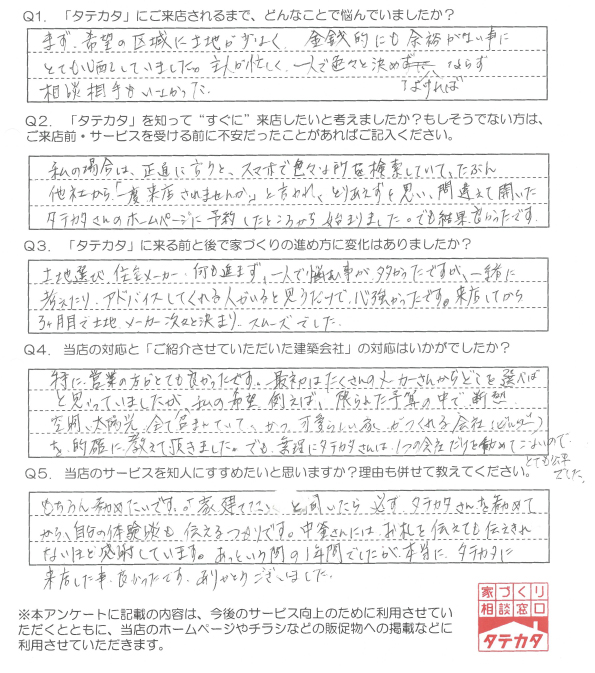 Q1. 「タテカタ」にご来店されるまで、どんなことで悩んでいましたか？
まず、希望の区域に土地が少なく、金銭的にも余裕がない事に
とても悩していました。主人が忙しく、一人で色々と決めず ならず
なければ
相談相手もいなかった。
Q2. 「タテカタ」を知って“すぐに”来店したいと考えましたか？もしそうでない方は、
ご来店前・サービスを受ける前に不安だったことがあればご記入ください。
私の場合は、正直に言うと、スマホで色々な所を検索していて、たぶん
他社から「一度来店されませんか」と言われ、とりあえずと思い、間違えて開いた
タテカタさんのホームページに予約したところから始まりました。でも結果良かったです。
Q3. 「タテカタ」に来る前と後で家づくりの進め方に変化はありましたか？
土地選び、住宅メーカー、何も進まず、一人で悩む事が多かったですが、一緒に
考えたり、アドバイスしてくれる人がいると思うだけで、心強かったです。来店してから
3ヶ月目で土地、メーカー次々と決まり、スムーズでした。
Q4. 当店の対応と「ご紹介させていただいた建築会社」の対応はいかがでしたか？
特に営業の方がとても良かったです。最初はたくさんのメーカーさんからどこを選べば
と思っていましたが、私の希望、例えば、限られた予算の中で断熱
空調、太陽光、全て含まれていて、かつ、可愛らしい家がつくれる会社(ビルダー)
を、的確に教えて頂きました。でも、無理にタテカタさんは、1つの会社だけを勧めてこないので
とても公平
でした。
Q5. 当店のサービスを知人にすすめたいと思いますか？理由も併せて教えてください。
もちろん勧めたいです。「家建てたい」と聞いたら必ず、タテカタさんを勧めて
から、自分の体験談も伝えるつもりです。中釜さんには、お礼を伝えても伝えきれ
ないほど感謝しています。あっという間の1年間でしたが、本当に、タテカタに
来店した事、良かったです。ありがとうございました。
※本アンケートに記載の内容は、今後のサービス向上のために利用させてい
ただくとともに、当店のホームページやチラシなどの販促物への掲載などに
利用させていただきます。
家づくり
相談窓口
タテカタ